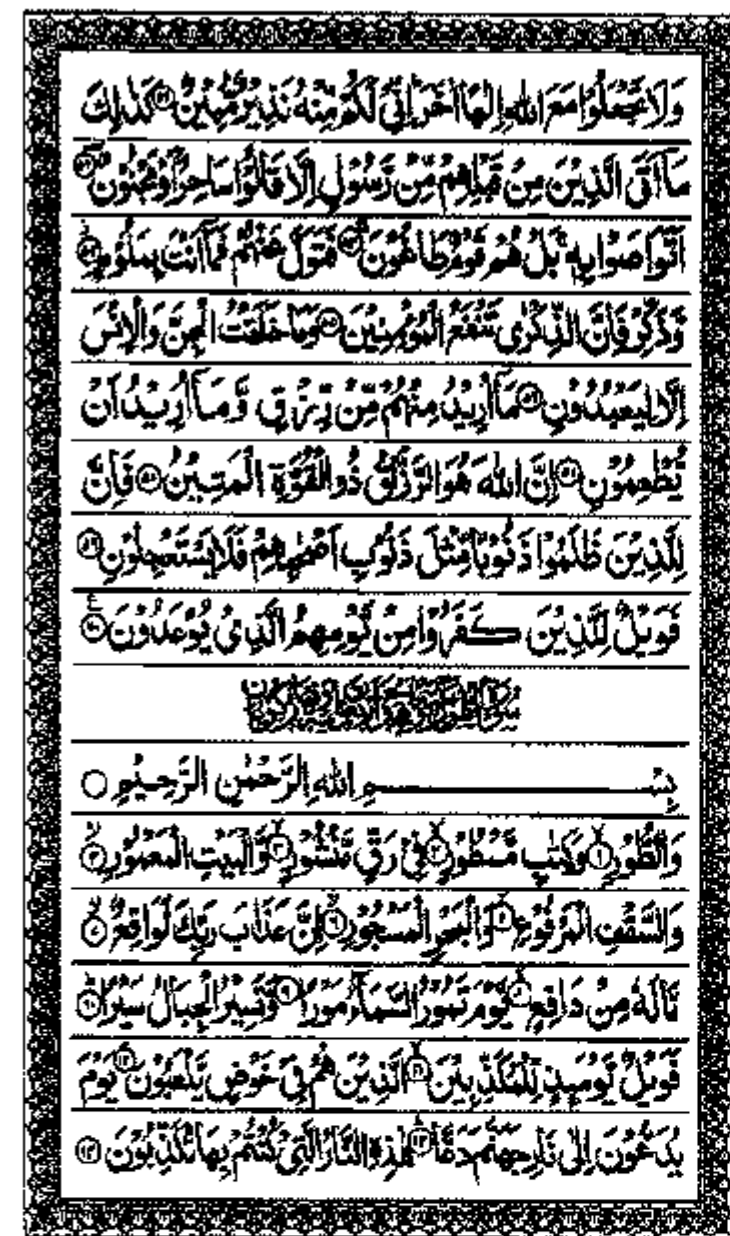 وَلَا تَجْعَلُوْا مَعَ اللّٰهِ اِلٰهًا اٰخَرَ اِنِّىْ لَكُمْ مِّنْهُ نَذِيْرٌ مُّبِيْنٌ ۵۱ كَذٰلِكَ
مَاۤ اَتَى الَّذِيْنَ مِنْ قَبْلِهِمْ مِّنْ رَّسُوْلٍ اِلَّا قَالُوْا سَاحِرٌ اَوْ مَجْنُوْنٌ ۵۲
اَتَوَاصَوْا بِهٖ بَلْ هُمْ قَوْمٌ طَاغُوْنَ ۵۳ فَتَوَلَّ عَنْهُمْ فَمَاۤ اَنْتَ بِمَلُوْمٍ ۵۴
وَّذَكِّرْ فَاِنَّ الذِّكْرٰى تَنْفَعُ الْمُؤْمِنِيْنَ ۵۵ وَمَا خَلَقْتُ الْجِنَّ وَالْاِنْسَ
اِلَّا لِيَعْبُدُوْنِ ۵۶ مَاۤ اُرِيْدُ مِنْهُمْ مِّنْ رِّزْقٍ وَّمَاۤ اُرِيْدُ اَنْ
يُّطْعِمُوْنِ ۵۷ اِنَّ اللّٰهَ هُوَ الرَّزَّاقُ ذُو الْقُوَّةِ الْمَتِيْنُ ۵۸ فَاِنَّ
لِلَّذِيْنَ ظَلَمُوْا ذَنُوْبًا مِّثْلَ ذَنُوْبِ اَصْحٰبِهِمْ فَلَا يَسْتَعْجِلُوْنِ ۵۹
فَوَيْلٌ لِّلَّذِيْنَ كَفَرُوْا مِنْ يَّوْمِهِمُ الَّذِىْ يُوْعَدُوْنَ ۶۰
بِسْمِ اللّٰهِ الرَّحْمٰنِ الرَّحِيْمِ
وَالطُّوْرِ ۱ وَكِتٰبٍ مَّسْطُوْرٍ ۲ فِىْ رَقٍّ مَّنْشُوْرٍ ۳ وَّالْبَيْتِ الْمَعْمُوْرِ ۴
وَالسَّقْفِ الْمَرْفُوْعِ ۵ وَالْبَحْرِ الْمَسْجُوْرِ ۶ اِنَّ عَذَابَ رَبِّكَ لَوَاقِعٌ ۷
مَّا لَهٗ مِنْ دَافِعٍ ۸ يَّوْمَ تَمُوْرُ السَّمَآءُ مَوْرًا ۹ وَّتَسِيْرُ الْجِبَالُ سَيْرًا ۱۰
فَوَيْلٌ يَّوْمَئِذٍ لِّلْمُكَذِّبِيْنَ ۱۱ الَّذِيْنَ هُمْ فِىْ خَوْضٍ يَّلْعَبُوْنَ ۱۲ يَوْمَ
يُدَعُّوْنَ اِلٰى نَارِ جَهَنَّمَ دَعًّا ۱۳ هٰذِهِ النَّارُ الَّتِىْ كُنْتُمْ بِهَا تُكَذِّبُوْنَ ۱۴